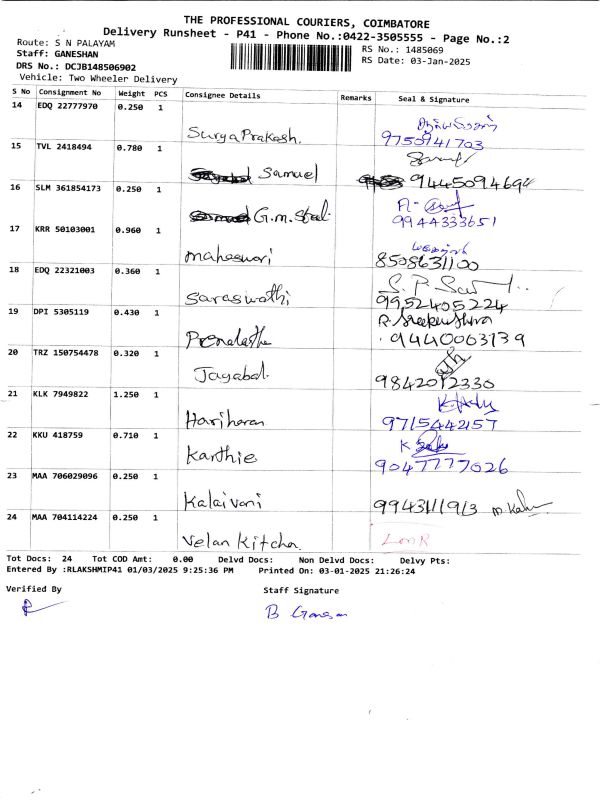 THE PROFESSIONAL COURIERS, COIMBATORE
Delivery Runsheet - P41 - Phone No.:0422-3505555 - Page No.:2
Route: S N PALAYAM
Staff: GANESHAN
RS No.: 1485069
DRS No.: DCJB148506902
RS Date: 03-Jan-2025
Vehicle: Two Wheeler Delivery
S No Consignment No Weight PCS Consignee Details Remarks Seal & Signature
14 EDQ 22777970 0.250 1
SuryaPrakash. 9750941703
15 TVL 2418494 0.780 1
Samuel 9445094694
16 SLM 361854173 0.250 1
G.m. 9944333651
17 KRR 50103001 0.960 1
maheswari 8508631100
18 EDQ 22321003 0.360 1
Saraswathi 9952405224
19 DPI 5305119 0.430 1
9440063139
20 TRZ 150754478 0.320 1
Jayabal. 9842012330
21 KLK 7949822 1.250 1
Hariharan 9715442157
22 KKU 418759 0.710 1
Karthie 9047777026
23 MAA 706029096 0.250 1
Kalaivani
24 MAA 704114224 0.250 1
Velan Kitchan
Tot Docs: 24 Tot COD Amt: 0.00 Delvd Docs: Non Delvd Docs: Delvy Pts:
Entered By :RLAKSHMIP41 01/03/2025 9:25:36 PM Printed On: 03-01-2025 21:26:24
Verified By Staff Signature
B Ganesan